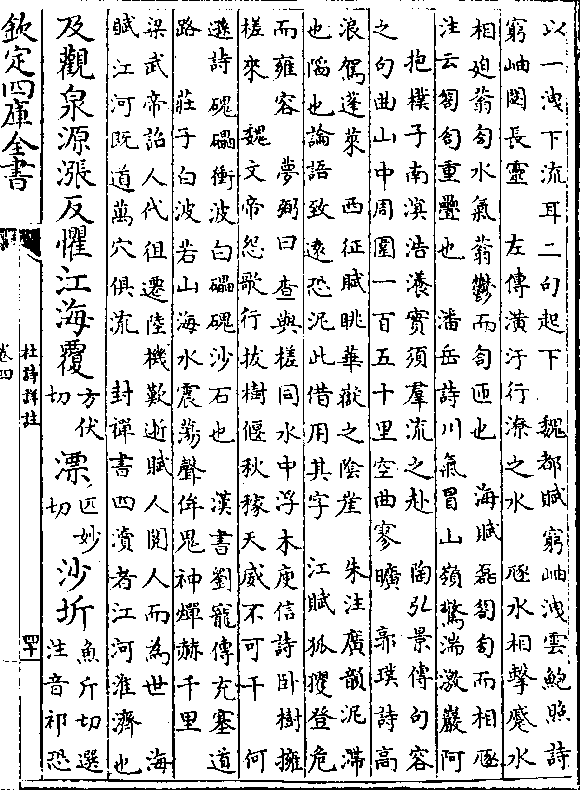 以一洩下流耳二句起下　魏都賦窮岫洩雲鮑照詩
窮岫閟長靈　左傳潢汙行潦之水　豗水相擊蹙水
相廹蓊匌水氣蓊鬱而匌匝也　海賦磊匒匌而相豗
注云匒匌重疊也　潘岳詩川氣冒山嶺驚湍激巖阿
抱樸子南溟浩瀁實須羣流之赴　陶弘景傳句容
之句曲山中周圍一百五十里空曲寥曠　郭璞詩高
浪駕蓬萊　西征賦眺華嶽之陰崖　朱注廣韻泥滯
也陷也論語致遠恐泥此借用其字　江賦狐玃登危
而雍容　夢弼曰查與槎同水中浮木庾信詩卧樹擁
槎來　魏文帝怨歌行拔樹偃秋稼天威不可干　何
遜詩磈磥衝波白磥磈沙石也　漢書劉寵傳充塞道
路　莊子白波若山海水震蕩聲侔鬼神燀赫千里
梁武帝詔人代徂遷陸機歎逝賦人閲人而為世　海
賦江河既道萬穴俱流　封禪書四瀆者江河淮濟也
及觀泉源漲反懼江海覆方伏切漂匹妙切沙坼魚斤切選注音祁恐
欽定四庫全書
杜詩詳註
卷四
四十